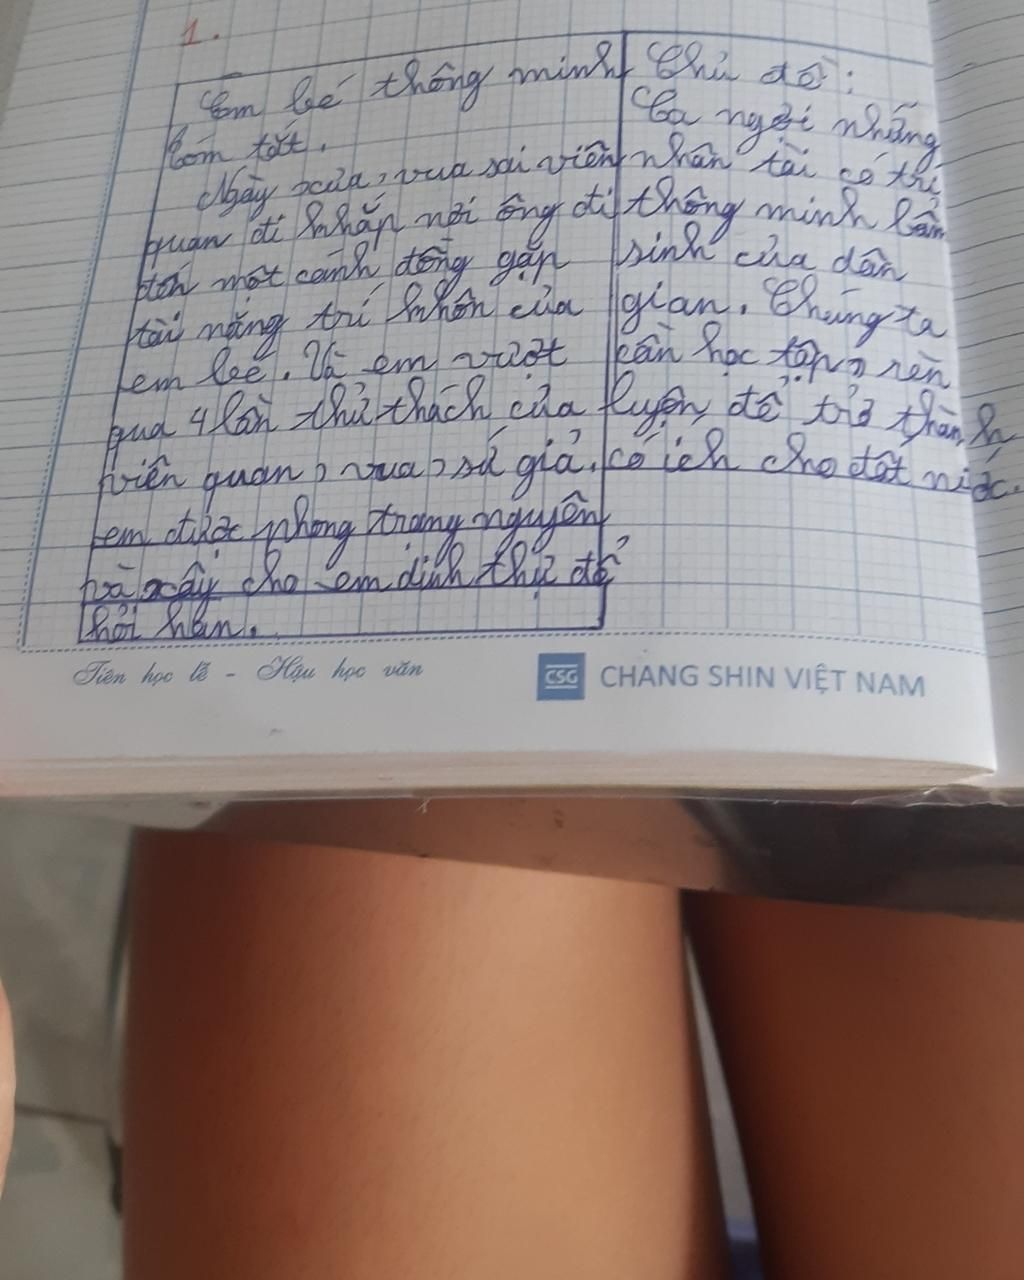 1.
Em bé thông minh
Tóm tắt.
Ngày xửa, vua sai viên
quan đi khắp nơi ông đi
đến một cánh đồng gặp
tài năng trí khôn của
em bé. Và em vượt
qua 4 lần thử thách của
viên quan, vua, sứ giả.
em được phong trạng nguyên
và xây cho em dinh thự để
hỏi han.
Chủ đề:
Ca ngợi những
nhân tài có trí
thông minh bẩm
sinh của dân
gian. Chúng ta
cần học tập, rèn
luyện để trở thành
có ích cho đất nước.
Tiên học lễ - Hậu học văn
CSG CHANG SHIN VIỆT NAM